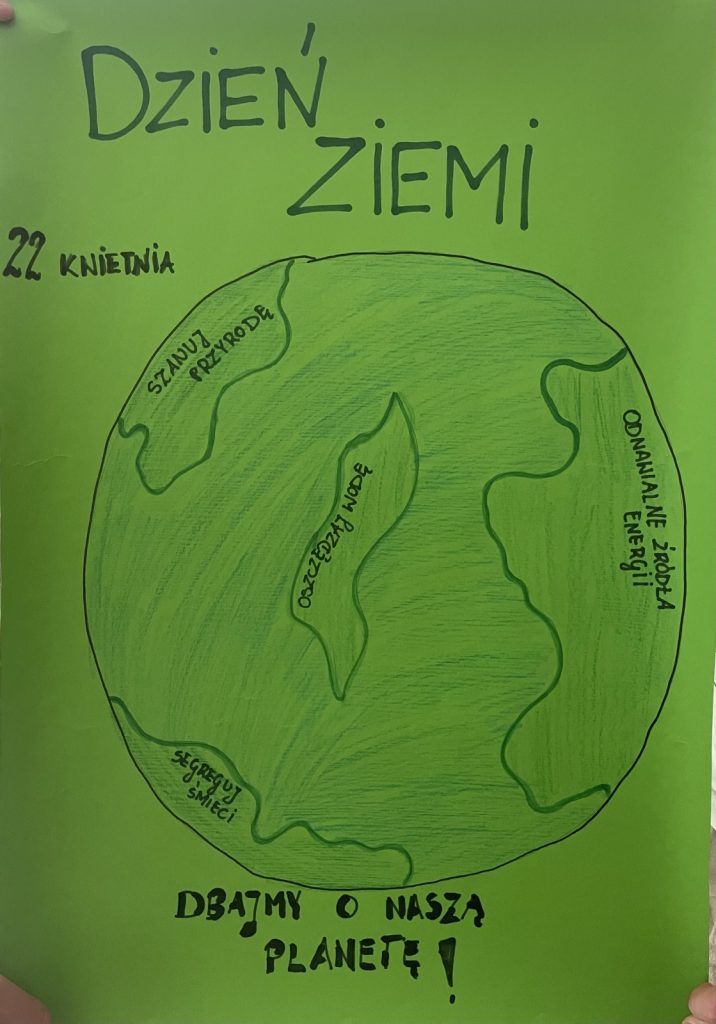 DZIEŃ
ZIEMI
22 KWIETNIA
SZANUJ
PRZYRODĘ
OSZCZĘDZAJ WODĘ
ODNAWIALNE ŹRÓDŁA
ENERGII
SEGREGUJ
ŚMIECI
DBAJMY O NASZĄ
PLANETĘ!